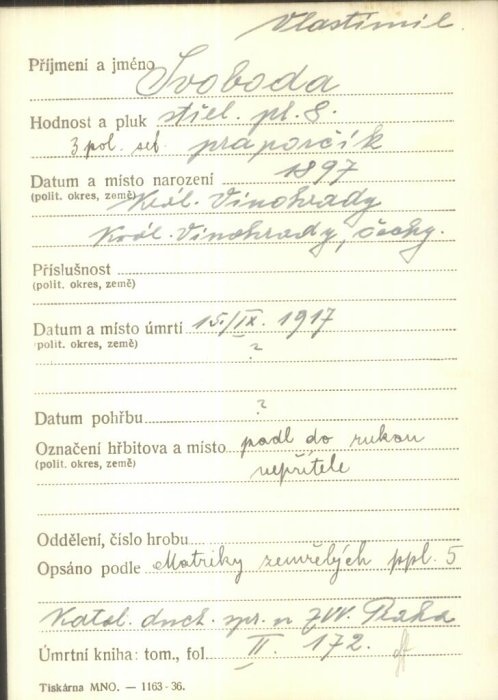 Vlastimil
Příjmení a jméno Svoboda
Hodnost a pluk střel. pl. 8.
3 pol. set praporčík
Datum a místo narození 1897
(polit. okres, země) Král. Vinohrady
Král. Vinohrady, Čechy.
Příslušnost
(polit. okres, země)
Datum a místo úmrtí 15/IX. 1917
(polit. okres, země) ?
Datum pohřbu ?
Označení hřbitova a místo padl do rukou
(polit. okres, země) nepřítele
Oddělení, číslo hrobu
Opsáno podle Matriky zemřelých ppl. 5
Katol. duch. spr. n ZVV. Praha
Úmrtní kniha: tom., fol. II. 172.
Tiskárna MNO. — 1163-36.